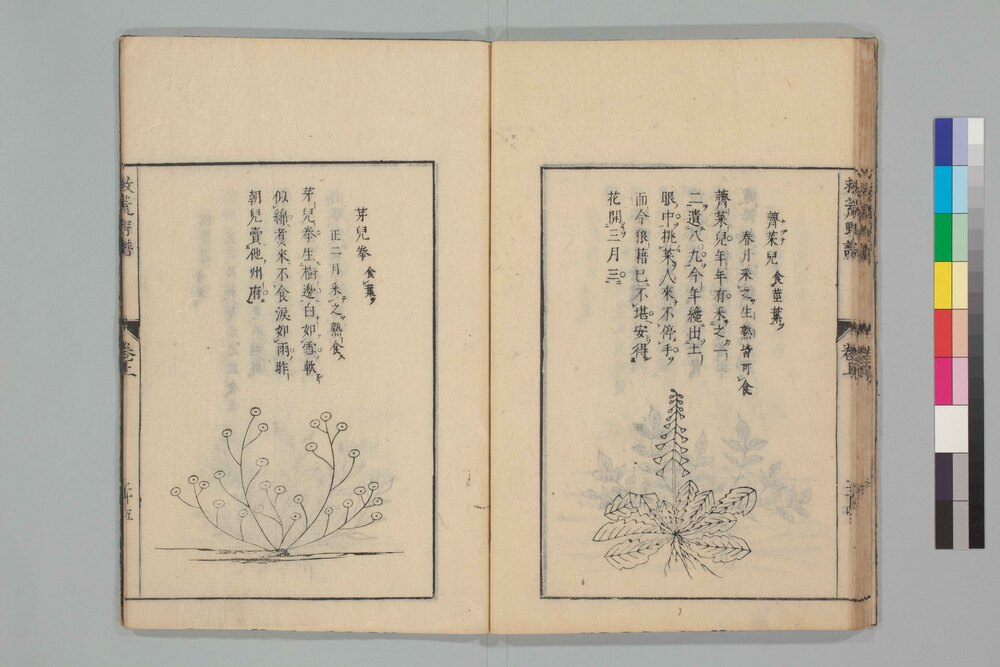 薺菜兒 食莖葉
春月采之生熟皆可食
薺菜兒年年有采之一
二遺八九今年纔出土
眼中挑菜人來不停手
而今狼藉已不堪安得
花開三月三
救荒野譜
卷上
芽兒拳 食葉
正二月采之熟食
芽兒拳生樹邊白如雪軟
似綿煑來不食淚如雨昨
朝兒賣他州府
救荒野譜
卷上
二十五